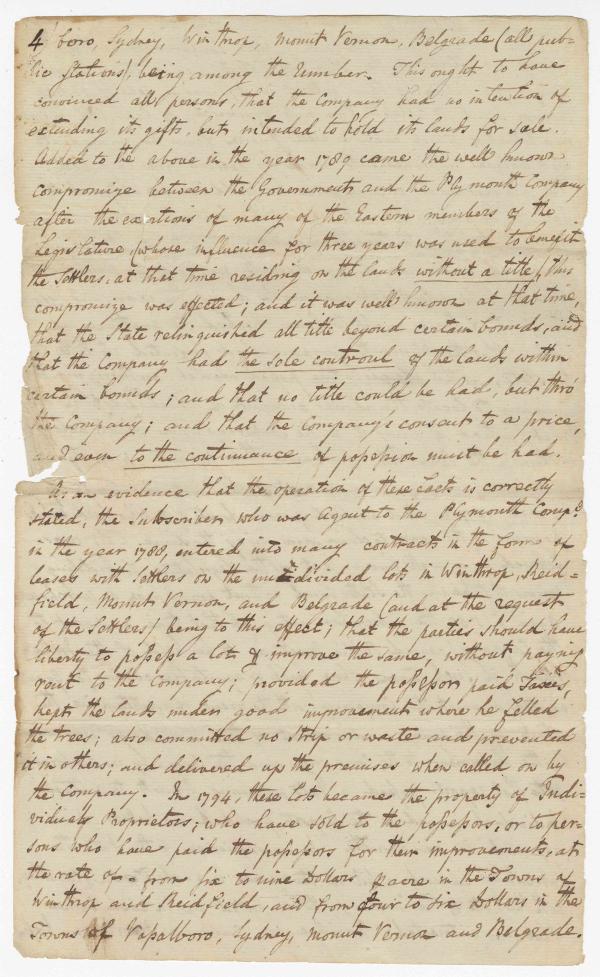 4 boro, Sydney, Winthrop, Mount Vernon, Belgrade (all pub-
lic Stations), being among the number. This ought to have
convinced all persons, that the Company had no intention of
extending its gifts, but intended to hold its lands for sale.
Added to the above in the year 1789 came the well known
compromize between the Government and the Plymouth Company
after the exertions of many of the Eastern members of the
Legislature (whose influence for three years was used to benefit
the Settlers, at that time residing on the lands without a title) this
compromize was effected; and it was well known at that time,
that the State relinquished all title beyond certain bounds, and
that the Company had the sole controul of the lands within
certain bounds; and that no title could be had, but thro'
the Company; and that the Company's consent to a price,
and even to the continuance of possession must be had.
As an evidence that the operation of these facts is correctly
stated, the Subscriber who was Agent to the Plymouth Comp.y
in the year 1788, entered into many contracts in the form of
leases with Settlers on the undivided lots in Winthrop, Reid-
field, Mount Vernon, and Belgrade (and at the request
of the Settlers) being to this effect; that the parties should have
liberty to possess a lot & improve the same, without paying
rent to the Company; provided the possessor paid Taxes,
kept the lands under good improvement where he felled
the trees; also committed no Strip or waste and prevented
it in others; and delivered up the premises when called on by
the Company. In 1794, these lots became the property of Indi-
viduals Proprietors; who have sold to the possessors, or to per-
sons who have paid the possessors for their improvements, at
the rate of - from six to nine Dollars p acre in the Towns of
Winthrop and Reidfield, and from four to six Dollars in the
Towns of Vassalboro, Sydney, Mount Vernon and Belgrade.